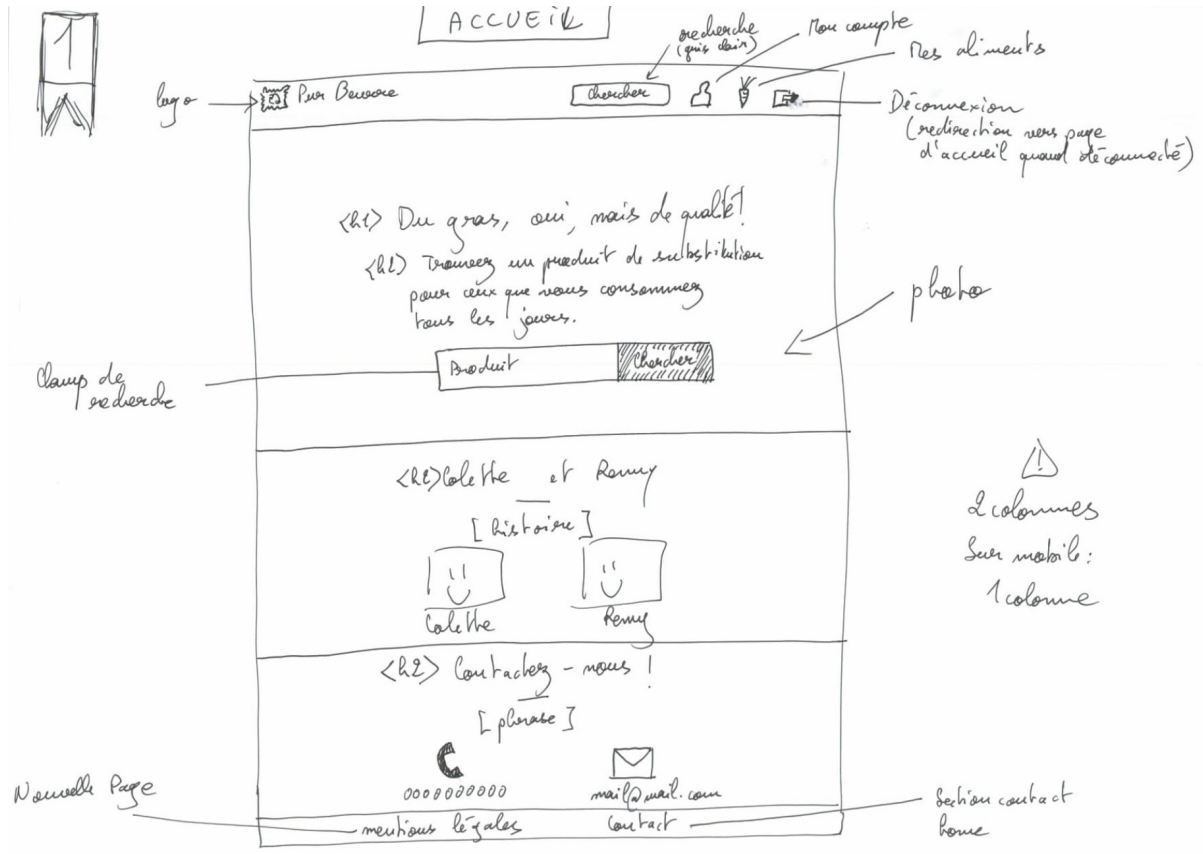 1
ACCUEIL
recherche
(gris clair)
Mon compte
Mes aliments
logo
Pur Beurre
chercher
Déconnexion
(redirection vers page
d'accueil quand déconnecté)
<h1> Du gras, oui, mais de qualité!
<h2> Trouvez un produit de substitution
pour ceux que vous consommez
tous les jours.
photo
Champ de
recherche
Produit
Chercher
<h2> Colette et Remy
[histoire]
Colette
Remy
2 colonnes
Sur mobile:
1 colonne
<h2> Contactez-nous!
[phrase]
0000000000
mail@mail.com
Nouvelle Page
mentions légales
Contact
Section contact
home